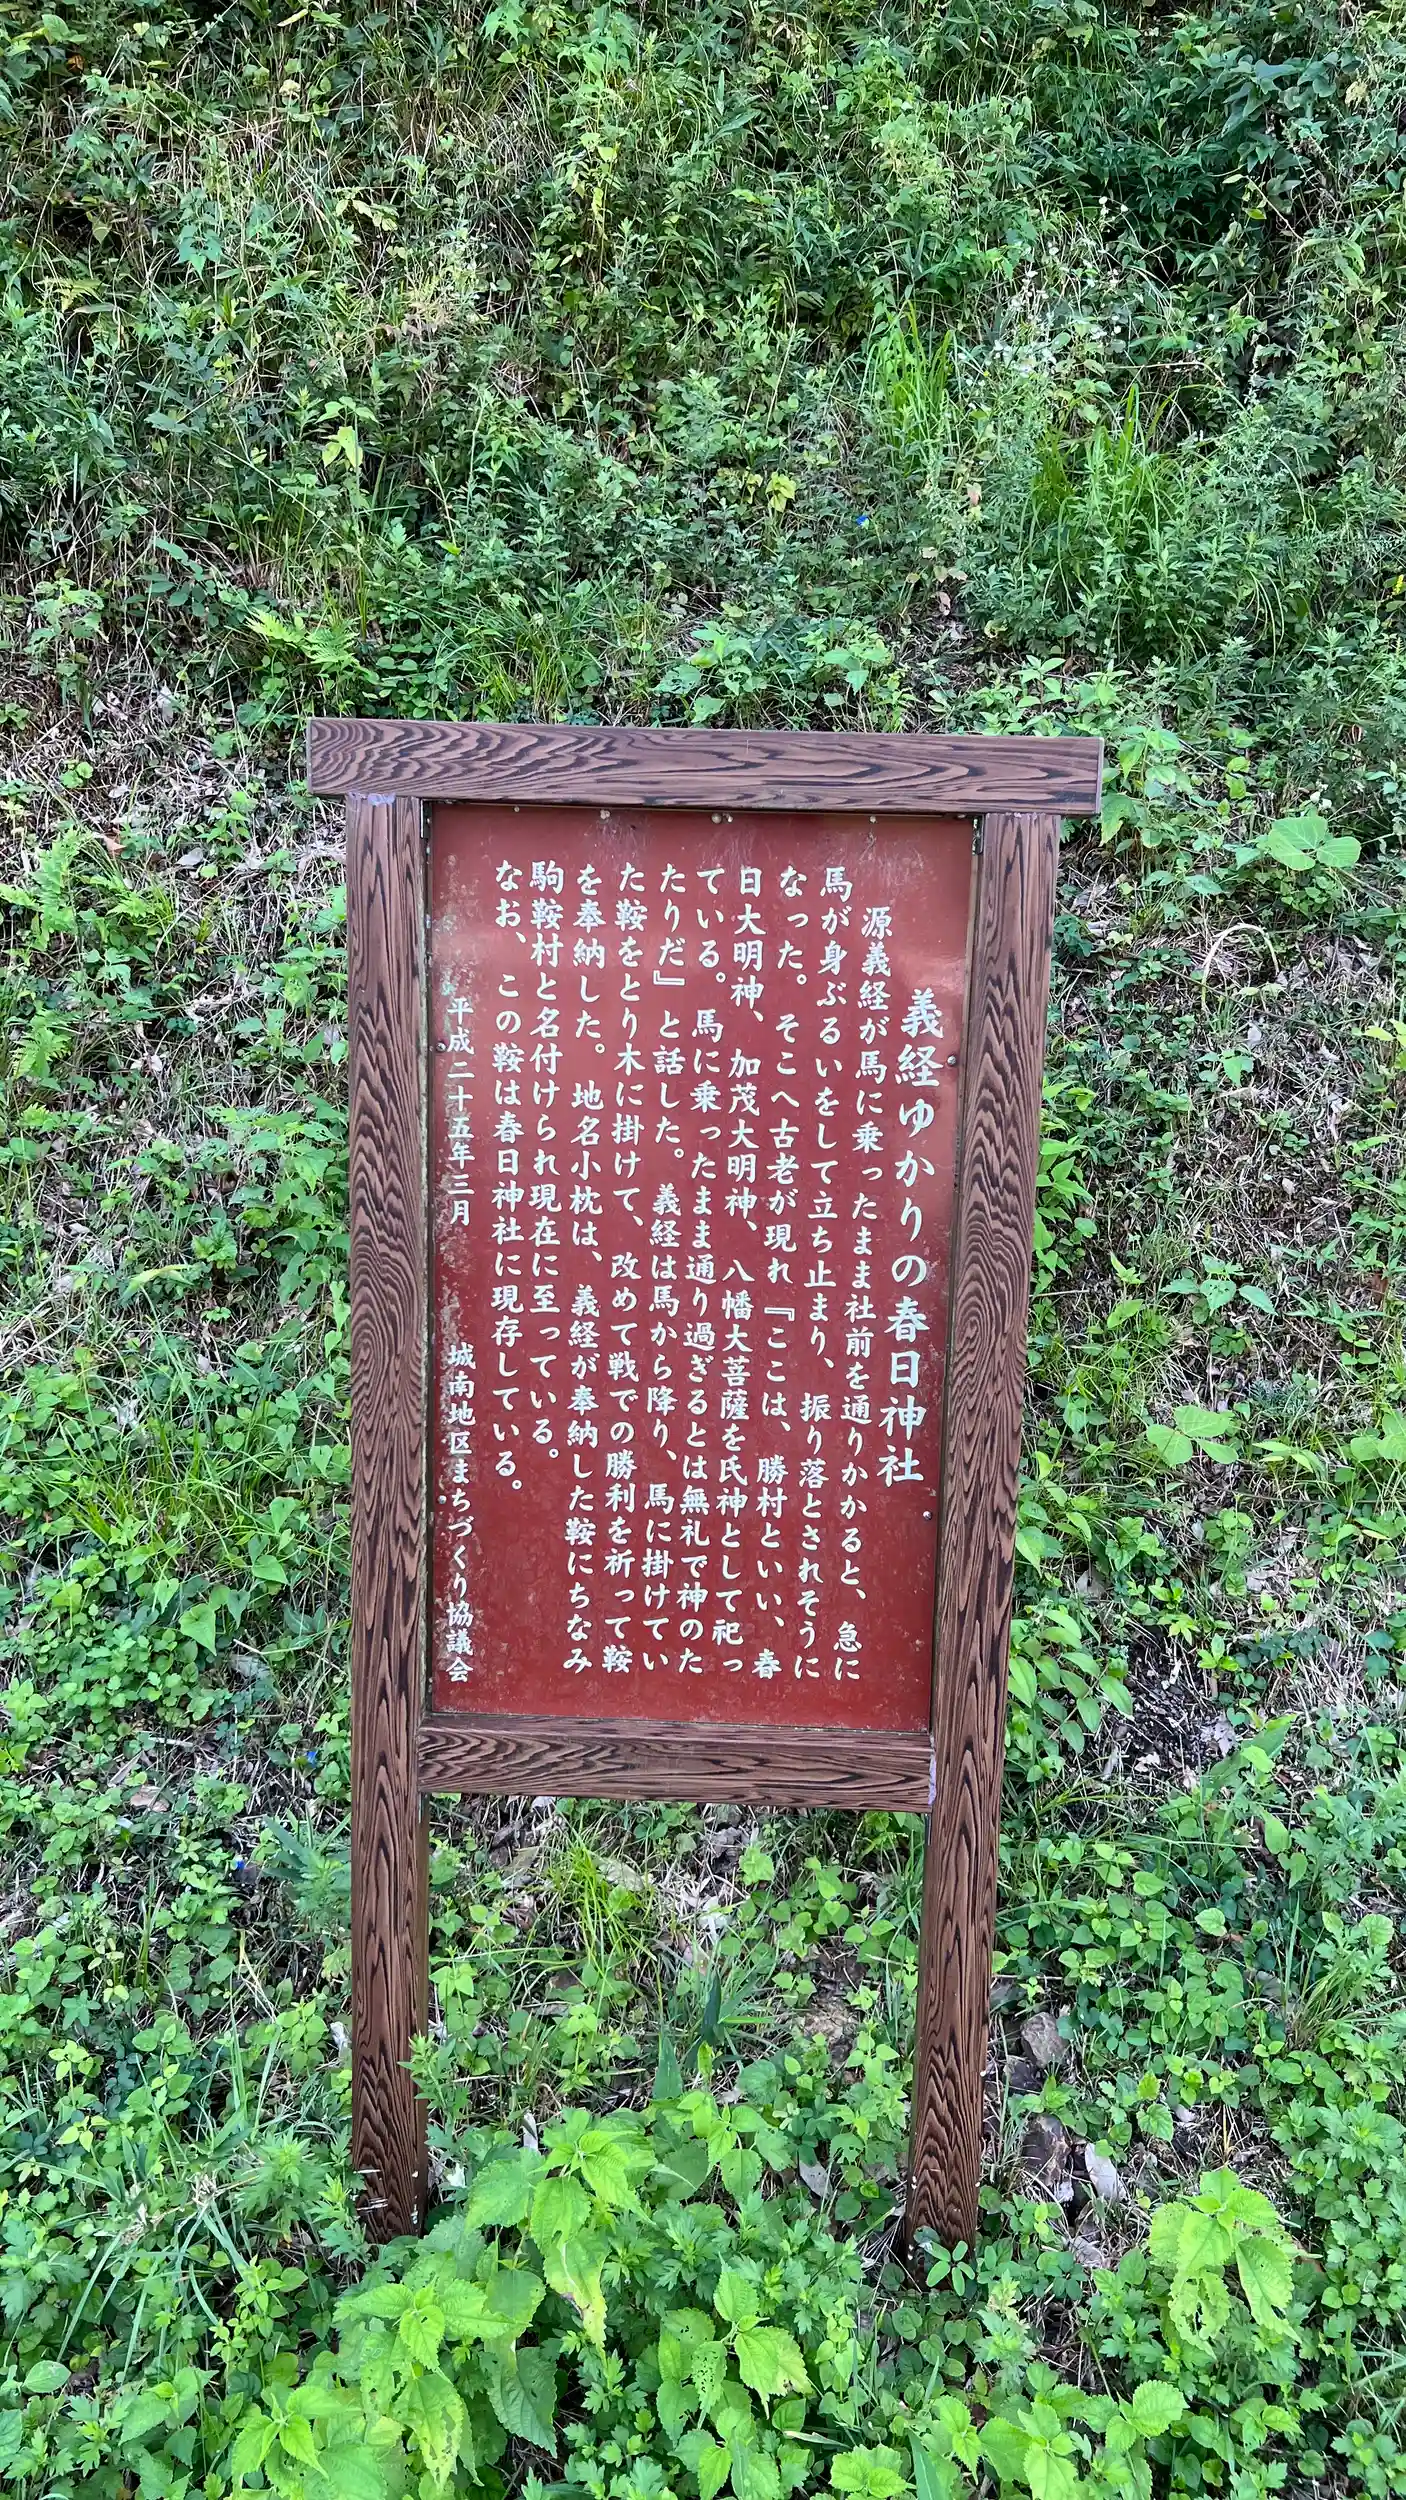 義経ゆかりの春日神社
源義経が馬に乗ったまま社前を通りかかると、急に
馬が身ぶるいをして立ち止まり、振り落とされそうに
なった。そこへ古老が現れ『ここは、勝村といい、春
日大明神、加茂大明神、八幡大菩薩を氏神として祀っ
ている。馬に乗ったまま通り過ぎるとは無礼で神のた
たりだ』と話した。義経は馬から降り、馬に掛けてい
た鞍をとり木に掛けて、改めて戦での勝利を祈って鞍
を奉納した。地名小枕は、義経が奉納した鞍にちなみ
駒鞍村と名付けられ現在に至っている。
なお、この鞍は春日神社に現存している。
平成二十五年三月 城南地区まちづくり協議会